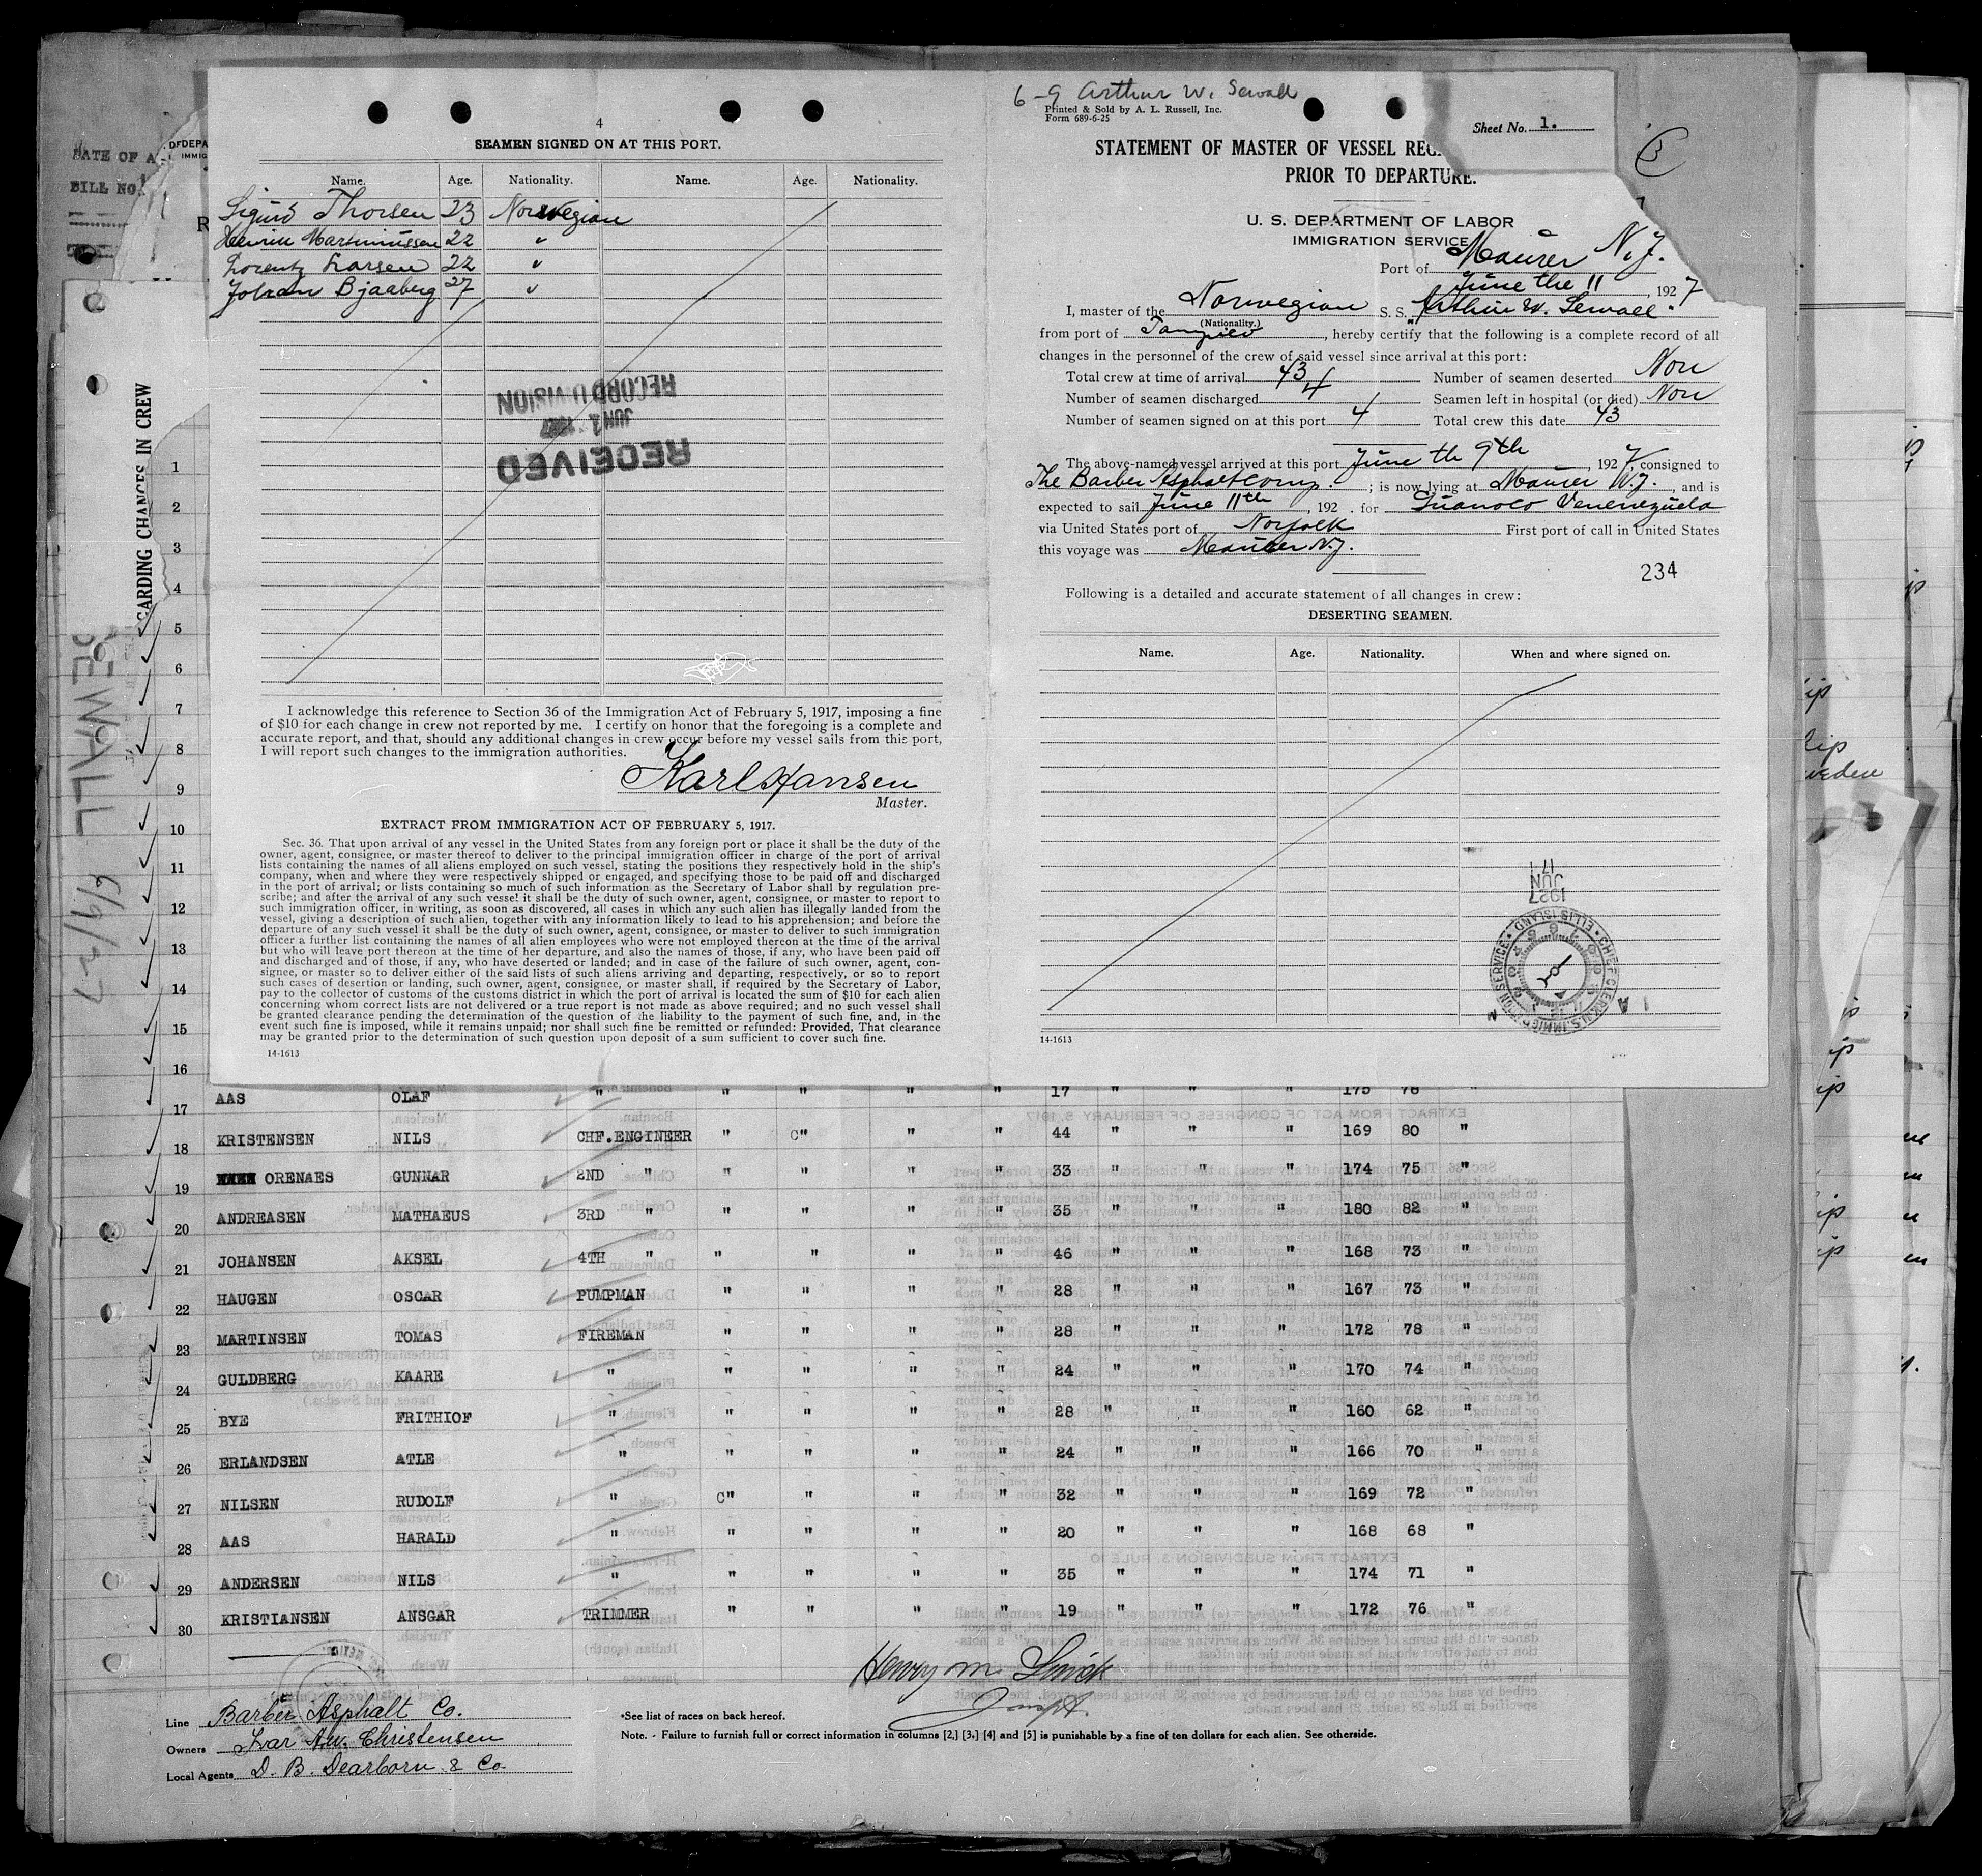 4
SEAMEN SIGNED ON AT THIS PORT.
Name. Age. Nationality. Name. Age. Nationality.
Sigurd Thorsen 23 Norwegian
Henrik Martinussen 22 "
Lorentz Larsen 22 "
Johan Bjaaberg 27 "
RECORD DIVISION
JUN 1927
RECEIVED
I acknowledge this reference to Section 36 of the Immigration Act of February 5, 1917, imposing a fine
of $10 for each change in crew not reported by me. I certify on honor that the foregoing is a complete and
accurate report, and that, should any additional changes in crew occur before my vessel sails from this port,
I will report such changes to the immigration authorities.
Karl Hansen
Master.
EXTRACT FROM IMMIGRATION ACT OF FEBRUARY 5, 1917.
Sec. 36. That upon arrival of any vessel in the United States from any foreign port or place it shall be the duty of the
owner, agent, consignee, or master thereof to deliver to the principal immigration officer in charge of the port of arrival
lists containing the names of all aliens employed on such vessel, stating the positions they respectively hold in the ship's
company, when and where they were respectively shipped or engaged, and specifying those to be paid off and discharged
in the port of arrival; or lists containing so much of such information as the Secretary of Labor shall by regulation pre-
scribe; and after the arrival of any such vessel it shall be the duty of such owner, agent, consignee, or master to report to
such immigration officer, in writing, as soon as discovered, all cases in which any such alien has illegally landed from the
vessel, giving a description of such alien, together with any information likely to lead to his apprehension; and before the
departure of any such vessel it shall be the duty of such owner, agent, consignee, or master to deliver to such immigration
officer a further list containing the names of all alien employees who were not employed thereon at the time of the arrival
but who will leave port thereon at the time of her departure, and also the names of those, if any, who have been paid off
and discharged and of those, if any, who have deserted or landed; and in case of the failure of such owner, agent, con-
signee, or master so to deliver either of the said lists of such aliens arriving and departing, respectively, or so to report
such cases of desertion or landing, such owner, agent, consignee, or master shall, if required by the Secretary of Labor,
pay to the collector of customs of the customs district in which the port of arrival is located the sum of $10 for each alien
concerning whom correct lists are not delivered or a true report is not made as above required; and no such vessel shall
be granted clearance pending the determination of the question of the liability to the payment of such fine, and, in the
event such fine is imposed, while it remains unpaid; nor shall such fine be remitted or refunded: Provided, That clearance
may be granted prior to the determination of such question upon deposit of a sum sufficient to cover such fine.
14-1613
6-9 Arthur W. Sewall
Printed & Sold by A. L. Russell, Inc.
Form 689-6-25
Sheet No. 1.
STATEMENT OF MASTER OF VESSEL REG
PRIOR TO DEPARTURE.
U. S. DEPARTMENT OF LABOR
IMMIGRATION SERVICE
Port of Maurer N.J.
June the 11, 1927
I, master of the Norwegian S. S. "Arthur W. Sewall"
(Nationality.)
from port of Tampico, hereby certify that the following is a complete record of all
changes in the personnel of the crew of said vessel since arrival at this port:
Total crew at time of arrival 43 Number of seamen deserted Non
Number of seamen discharged 4 Seamen left in hospital (or died) Non
Number of seamen signed on at this port 4 Total crew this date 43
The above-named vessel arrived at this port June th 9th, 1927, consigned to
The Barber Asphalt Comp.; is now lying at Maurer N.J., and is
expected to sail June 11th, 192 . for Guanoco Venenezuela
via United States port of Norfolk First port of call in United States
this voyage was Maurer N.J.
234
Following is a detailed and accurate statement of all changes in crew:
DESERTING SEAMEN.
Name. Age. Nationality. When and where signed on.
1927
JUN
17
CHIEF CLERK, U.S. IMMIGRATION SERVICE • ELLIS ISLAND •
14-1613
DATE OF A
BILL NO. 1
GARDING CHANGES IN CREW
SEWALL 6/9/27
1
2
3
4
5
6
7
8
9
10
11
12
13
14
15
16
17 AAS OLAF " " " " " 17 " " " 175 78 "
18 KRISTENSEN NILS CHF.ENGINEER " C" " " 44 " " " 169 80 "
19 ORENAES GUNNAR 2ND " " " " " 33 " " " 174 75 "
20 ANDREASEN MATHAEUS 3RD " " " " " 35 " " " 180 82 "
21 JOHANSEN AKSEL 4TH " " " " " 46 " " " 168 73 "
22 HAUGEN OSCAR PUMPMAN " " " " 28 " " " 167 73 "
23 MARTINSEN TOMAS FIREMAN " " " " 28 " " " 172 78 "
24 GULDBERG KAARE " " " " " 24 " " " 170 74 "
25 BYE FRITHIOF " " " " " 28 " " " 160 62 "
26 ERLANDSEN ATLE " " " " " 24 " " " 166 70 "
27 NILSEN RUDOLF " C" " " " 32 " " " 169 72 "
28 AAS HARALD " " " " " 20 " " " 168 68 "
29 ANDERSEN NILS " " " " " 35 " " " 174 71 "
30 KRISTIANSEN ANSGAR TRIMMER " " " " 19 " " " 172 76 "
Line Barber Asphalt Co.
Owners Ivar An. Christensen
Local Agents D. B. Dearborn & Co.
Henry M.
*See list of races on back hereof.
Note. - Failure to furnish full or correct information in columns [2,] [3,] [4] and [5] is punishable by a fine of ten dollars for each alien. See otherside.